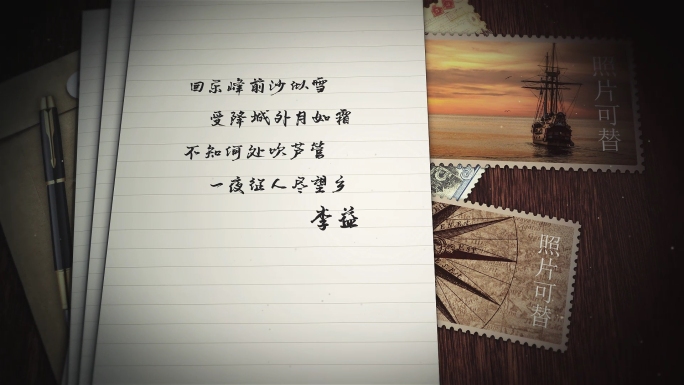 回乐峰前沙似雪
受降城外月如霜
不知何处吹芦管
一夜征人尽望乡
李益
照片可替
照片可替